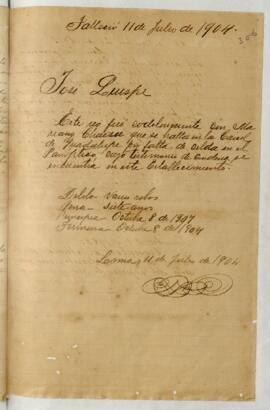 Falleció 11 de Julio de 1904.
306
José Quispe
Este reo fué codelincuente con Ma
riano que se halla en la Carcel
de Guadalupe por falta de celda en el
Panoptico cuyo testimonio de condena se
encuentra en este Establecimiento.
Delito Varios robos
Pena Siete años
Principia Octubre 8 de 1897
Termina Octubre 8 de 1904
Lima, 11 de Julio de 1904